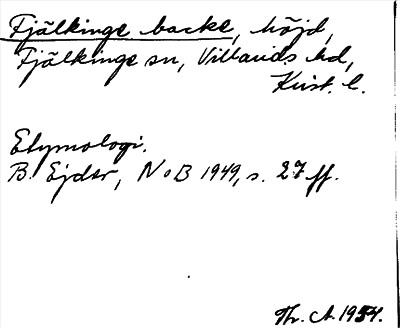 Fjälkinge backe, höjd,
Fjälkinge sn, Villands hd,
Krist. l.
Etymologi.
B. Ejder, NoB 1949, s. 27 ff.
Th. A. 1954.